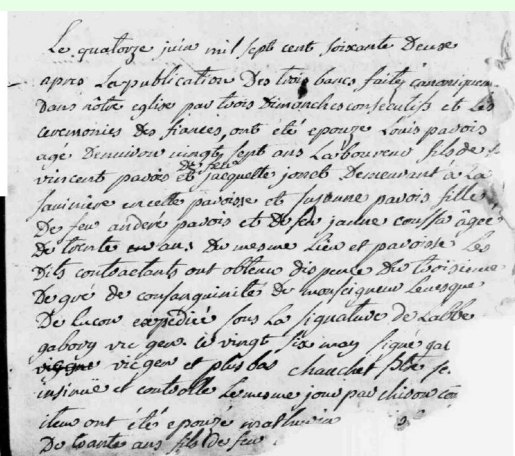 Le quatorze juin mil sept cent soixante Deux
apres La publication Des trois bancs faitte canoniquem
Dans nôtre eglise par trois Dimanches consecutifs et Les
ceremonies Des fiancés, ont été epouze Louis pavois
agé Denviron vingt sept ans Laboureur fils de
vincent pavois et de feue jacquette jonet Demeurant à La
en cette paroisse et suzanne pavois fille
De feu andré pavois et De feu janne coussa âgée
De trente ans De mesme Lieu et paroisse Les
Dits contractants ont obtenu dispence Du troisieme
Degré De consanguinité De monseigneur Levesque
De Lucon expédiée sous La signature De Labbe
gabory vic gen. ce vingt six may signé gab
vic gen et plus bas chauchet
insinué et controlle Le mesme jour par chison con
item ont étés epouzé mathurin
De trante ans fils De feu